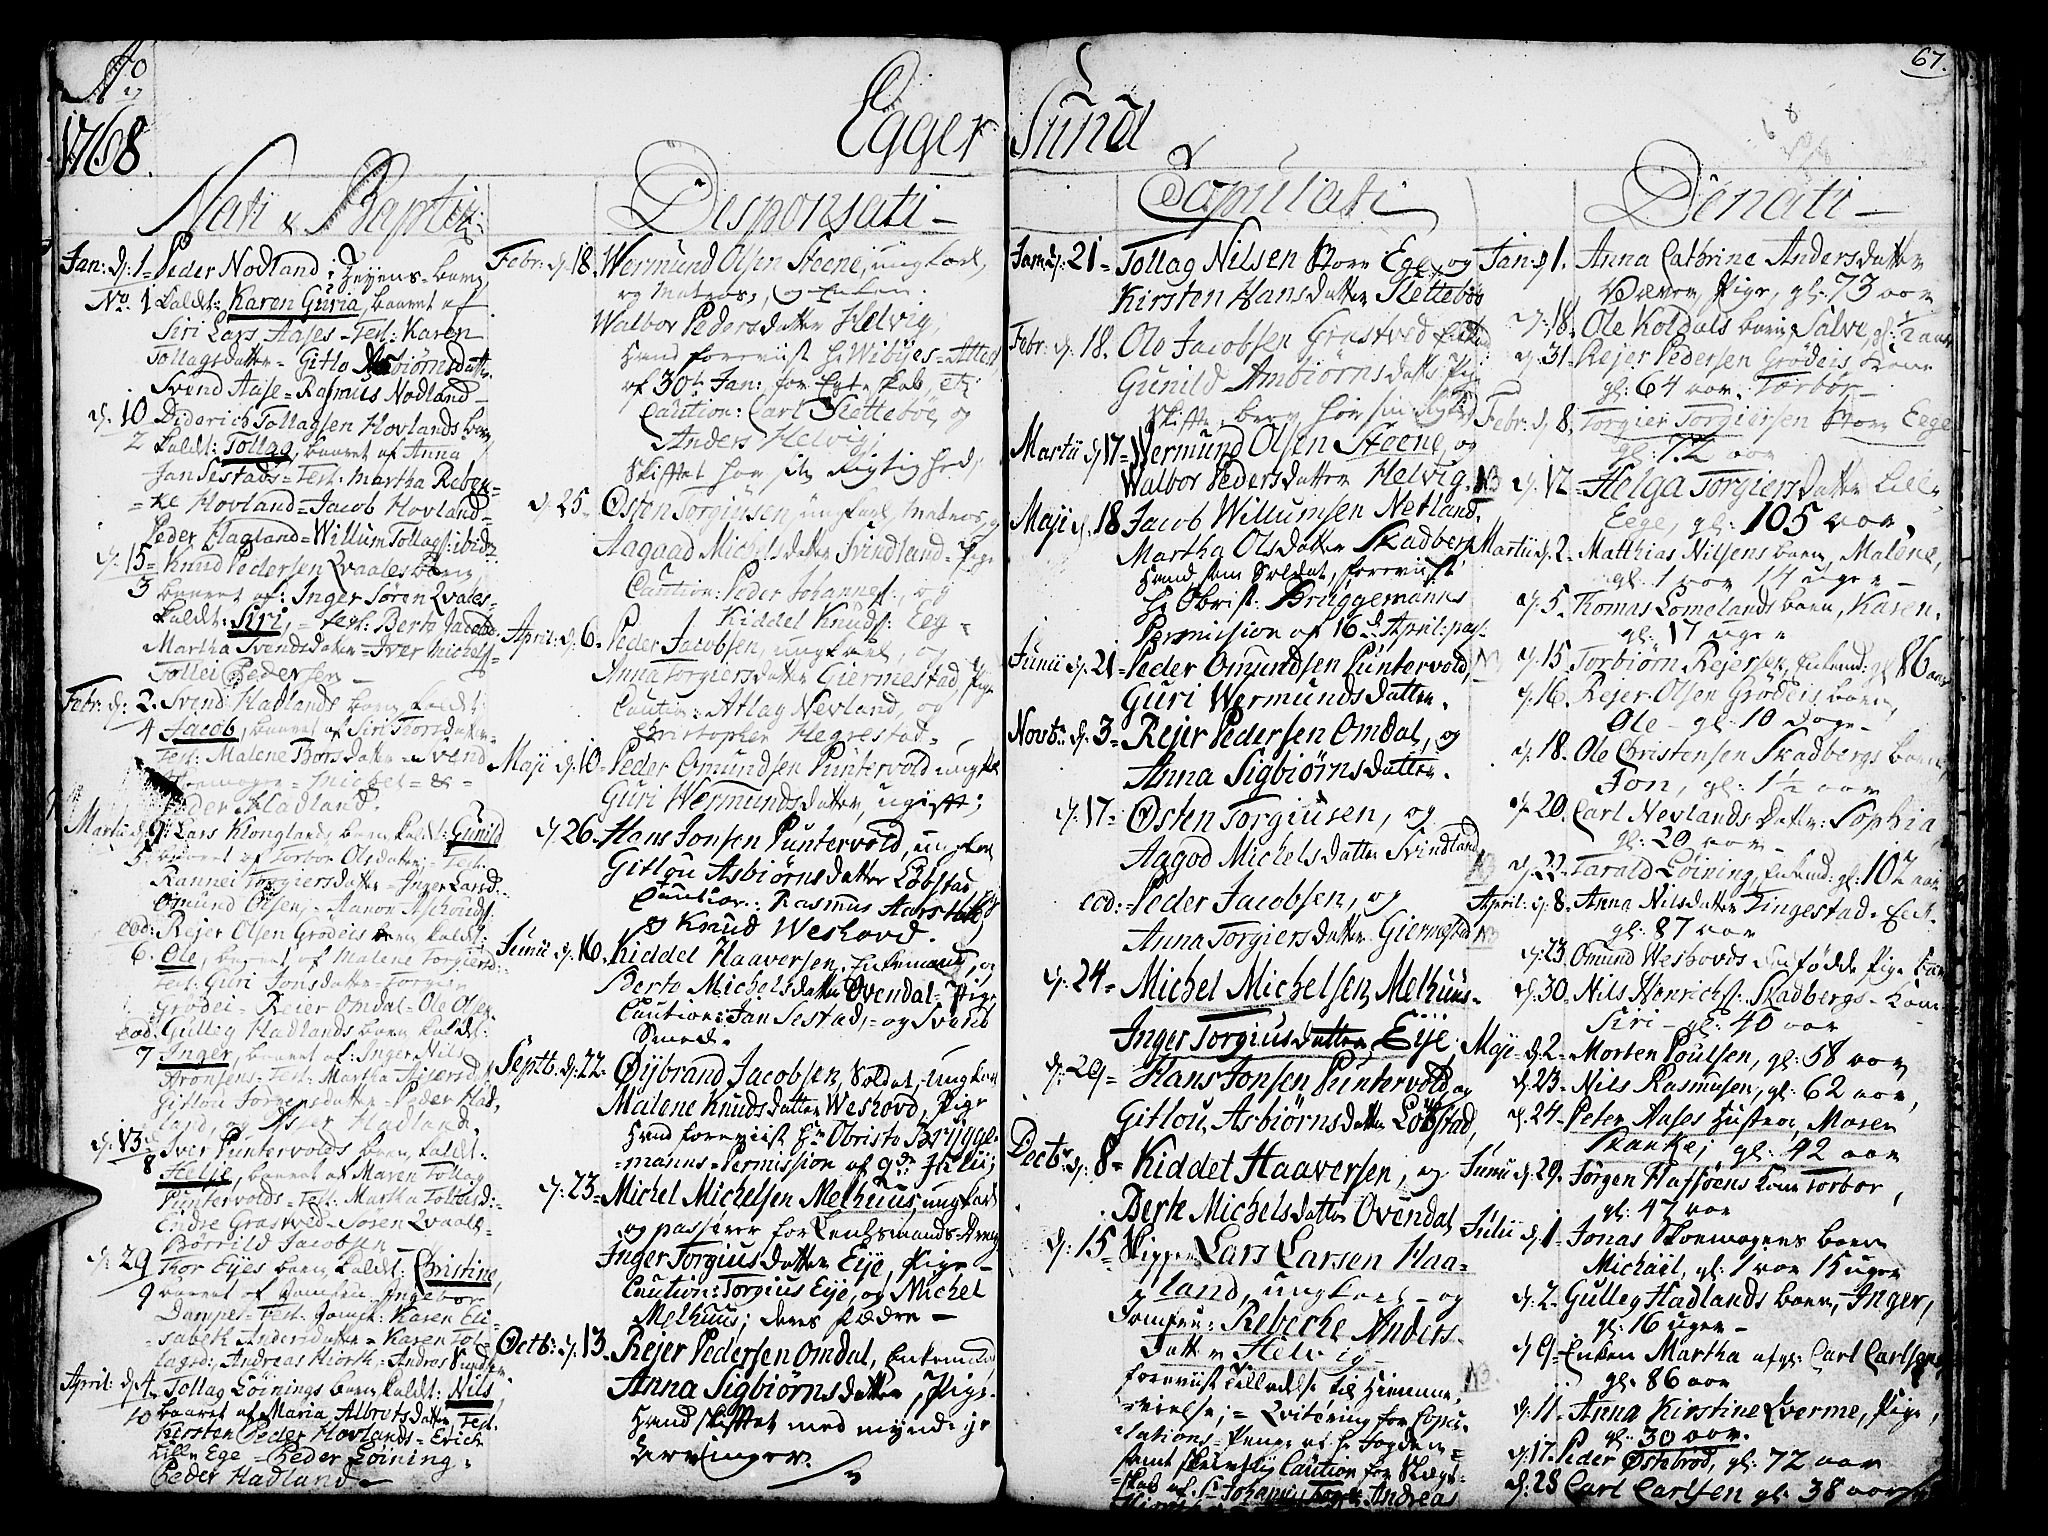 Ao
1768.
Egger
Sund
67.
Nati & Baptiz:
Jan: d: 1 = Peder Nodland
No. 1 kaldt: Karen Guria, baaret af
Siri Lars Aases = Test: Karen
Tollagsdatter = Gitlo Asbiørnsdatter
Svend Aase = Rasmus Nodland
d. 10 Diderich Tollagsen Hovlands barn
2 kaldt: Tollag, baaret af Anna
Jan Sestads = Test: Martha Reben=
=ke Hovland = Jacob Hovland=
Peder Hagland = Willum Tollags: ibid:
d. 15 = Knud Pedersen Qvales barn
3 baaret af: Inger Søren Qvales
kaldt: Siri, = test: Berte Jacobs
Martha Svendsdatter = Iver Michels
Tollei Pedersen
Febr: d: 2. Svend Hadlands barn kaldt
4 Jacob, baaret af Siri Torsdatter
Test: Malene Torsdatter = Svend
Michel = & =
Peder Hadland.
Martii d. 9: Lars Klonglands barn kaldt: Gunild
5. baaret af Torbor Olsdatter = Test:
Rannei Torgiersdatter = Inger Lars d:
Omund Olsen = Aanon
eod: Rejer Olsen Grødeis barn kaldt:
6. Ole, baaret af Malene Torgiers d:
test: Guri Jonsdatter = Torgier
Grødei = Rejer Omdal = Ole Olsen
eod. Gulleg Hadlands barn kaldt:
7 Inger, baaret af: Inger Nils
Aronsens = Test: Martha Asjersd:
Gitlou Jørgensdatter = Peder Had=
land, og Asser Hadland.
d. 13. Iver Puntervolds barn, kaldt:
8 Helje, baaret af Maren Tollag
Puntervolds = Test: Martha
Endre Grastved = Søren Qvale =
Børrild Jacobsen
d. 29 Thor Eyes barn, kaldt: Christine,
9 baaret af Jomfru Ingebor
Dampe = Test: Jomf: Karen Eli=
=sabeth Andersdatter = Karen Tol=
lagsd: Andreas Hiorth = Andreas
April: d. 4 = Tollag Løinings barn kaldt: Nils
10 baaret af Maria Albretsdatter Test:
Kirsten Peder Hovlands = Erich
Lille Ege = Peder Løining =
Peder Hadland
Desponsati
Febr: d. 18. Wermund Olsen Steene, ung karl,
og Matros, og
Walbor Pedersdatter Helvig,
Hand foreviist H: Wibyes = Attest
af 30te Jan: for Egteskab, etc:
Caution: Carl Slettebøe og
Anders Helvig;
Skifftet har sin Rigtighed,
d. 25 = Østen Torgiusen, ung karl, Matros, og
Aagaad Michelsdatter Svindland = Pige
Caution: Peder Johannes:, og
Kiddel Knuds: Eeg =
April: d. 6. Peder Jacobsen, ung karl, og
Anna Torgiersdatter Giermestad Pige
Caution: Atlag Nevland, og
Christopher Hegrestad =
Maji d. 10 = Peder Omundsen Puntervold ung karl
Guri Wermundsdatter, ugift;
d. 26. Hans Jonsen Puntervold, ung karl
Gitlou Asbiørnsdatter Lobstad,
Caution: Rasmus Aarstad
& Knud Weshovd.
Junii d. 16. Kiddel Haaversen, Enkemand, og
Berte Michelsdatter Ovendal = Pige
Caution: Jan Sestad, = og Svend
Smed.
Septb: d. 22. Øijbrand Jacobsen, Soldat, ung karl
Malene Knudsdatter Weshovd, Pige
Hand foreviist Hr. Obriste Brügge=
=manns = Permission af 9de Julii;
d. 23 = Michel Michelsen Melhuus, ung karl
og passerer for Lensmands=Dreng
Inger Torgiusdatter Eije, Pige
Caution: Torgius Eije, og Michel
Melhuus; deres Fædre —
Octb: d. 13. Rejer Pedersen Omdal, Enkemand
Anna Sigbiørnsdatter, Pige.
Hand skifftet med myndige
Arvinger.
Copulati
Jan: d: 21 = Tollag Nilsen Store Ege, og
Kirsten Hansdatter Slettebøe
Febr: d. 18. Ole Jacobsen Grastved
Gunild Ambiørnsdatter Pige
Martii d. 17 = Wermund Olsen Steene, og
Walbor Pedersdatter Helvig. NB
Maji d. 18 Jacob Willumsen Netland.
Martha Olsdatter Skadberg
Hand som Soldat, foreviist
H: Obrist: Bruggemanns
Permission af 16de April:
Junii d. 21 = Peder Omundsen Puntervold,
Guri Wermundsdatter.
Novb: d. 3 = Rejer Pedersen Omdal, og
Anna Sigbiørnsdatter.
d. 17 = Østen Torgiusen, og
Aagod Michelsdatter Svindland
eod: = Peder Jacobsen, og
Anna Torgiersdatter Giermestad
d. 24 = Michel Michelsen Melhuus =
Inger Torgiusdatter Eije.
d. 29 = Hans Jonsen Puntervold, og
Gitlou Asbiørnsdatter Lobstad,
Decbr: d. 8 = Kiddel Haaversen, og
Berte Michelsdatter Ovendal
d. 15 = Skipper Lars Larsen Haa=
land, ung karl = og
Jomfru: Rebecke Anders=
Datter Helvig
foreviist Tilladelse til Hiemme=
vielse; = Qvitering for Copu=
lations=Penge af H. Fogden =
samt skriftlig Caution for Slægt=
=skab af Sr. Andreas
Denati
Jan: d. 1. Anna Cathrine Andersdatter
Pige, gl: 73 aar
d. 18. Ole Koldals barn Salve, gl: ½ aar
d. 31. Rejer Pedersen Grødeis Kone
gl: 64 aar. Torbor —
Febr: d. 8. Torgier Torgiersen Store Eege
gl: 72 aar
d. 12 = Helga Torgiersdatter Lille
Eege, gl: 105 aar.
Martii d. 2 = Matthias Nilsens barn, Malene,
gl: 1 aar 14 uger —
d. 5. Thomas Lomelands barn, Karen.
gl: 17 uger
d. 15 Torbiørn Rejersen, Enkemd: gl: 86 aar
d. 16. Rejer Olsen Grødeis barn,
Ole — gl: 10 dage —
d. 18. Ole Christensen Skadbergs barn
Jon, gl: 1½ aar
d. 20. Carl Nevlands Datter: Sophia
gl: 20 aar —
d. 22 = Tarald Løining, Enkemd: gl: 102 aar
April: d. 8. Anna Nilsdatter Tingestad = Enke
gl: 87 aar
d. 23. Omund Weshovds fødde Pige barn
d. 30. Nils Henrichs: Skadbergs = Kone
Siri — gl: 40 aar
Maji d. 2 = Morten Poulsen, gl: 58 aar
d. 23 = Nils Rasmusen, gl: 62 aar,
d. 24. Peter Aases Hustrue, Maren
Skanke; gl: 42 aar
Junii d. 29. Jørgen Hafsøens Kone Torbor,
gl: 47 aar
Julii d. 1 = Jonas Skomagers barn
Michael, gl: 1 aar 15 uger
d. 2. Gulleg Hadlands barn, Inger,
gl: 16 uger —
d. 9 = Enken Martha afgl: Carl Carlsens
gl: 86 aar
d. 11 = Anna Kirstine Qverme, Pige,
gl: 30 aar.
d. 17. Peder Østebrød, gl: 72 aar
d. 28 Carl Carlsen gl: 38 aar